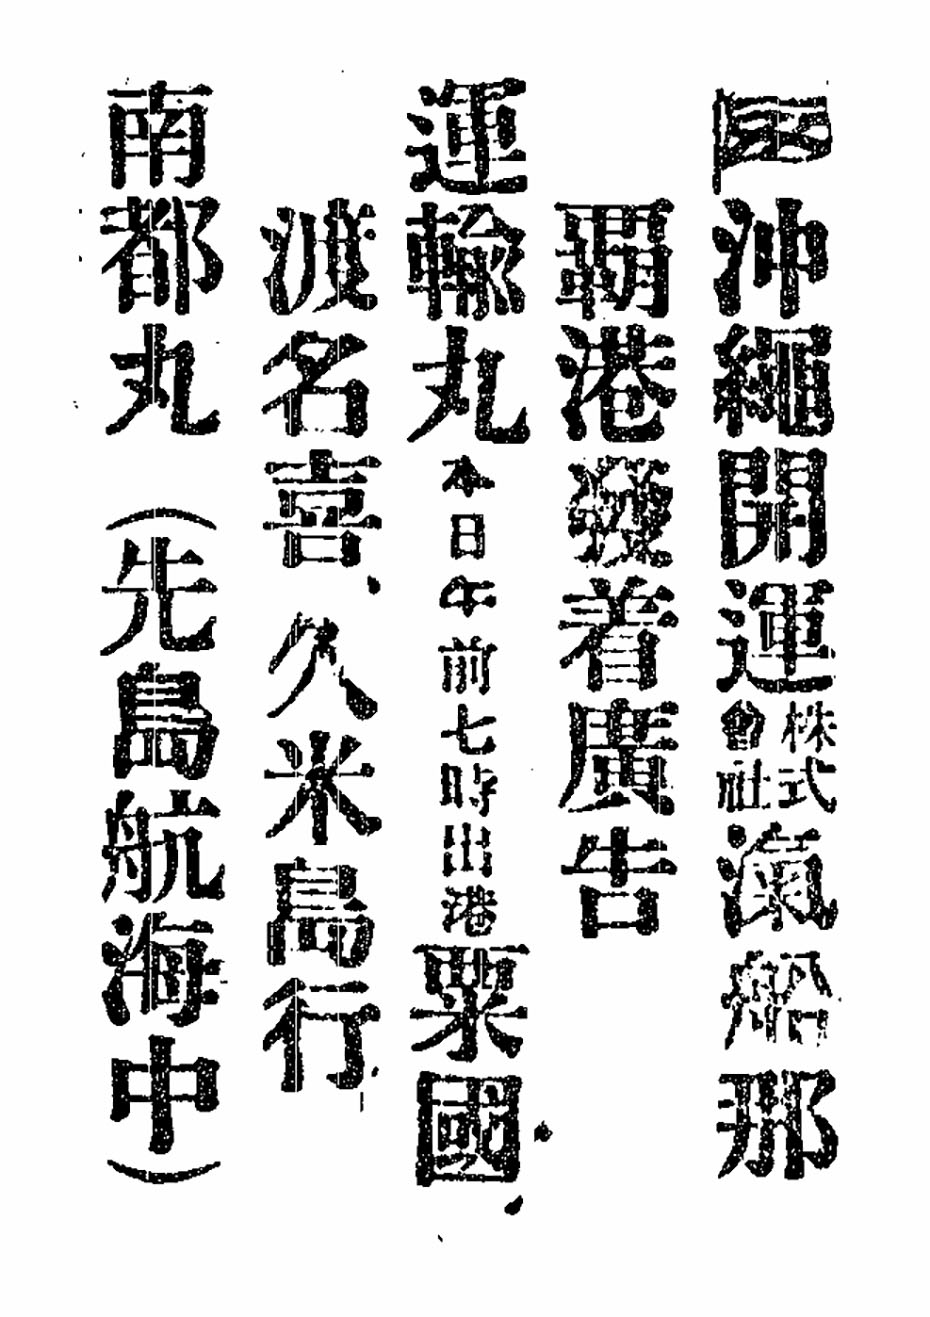 沖繩開運株式會社滊船那
覇港發着廣告
運輸丸本日午前七時出港粟國、
渡名喜、久米島行
南都丸 (先島航海中)